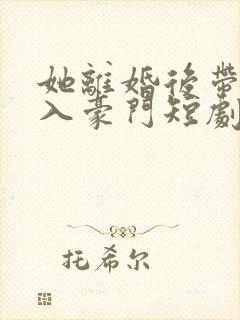 她離婚後帶
入豪門短劇
托希尔